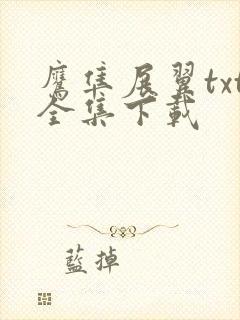 鷹隼展翼txt
全集下載
藍掉